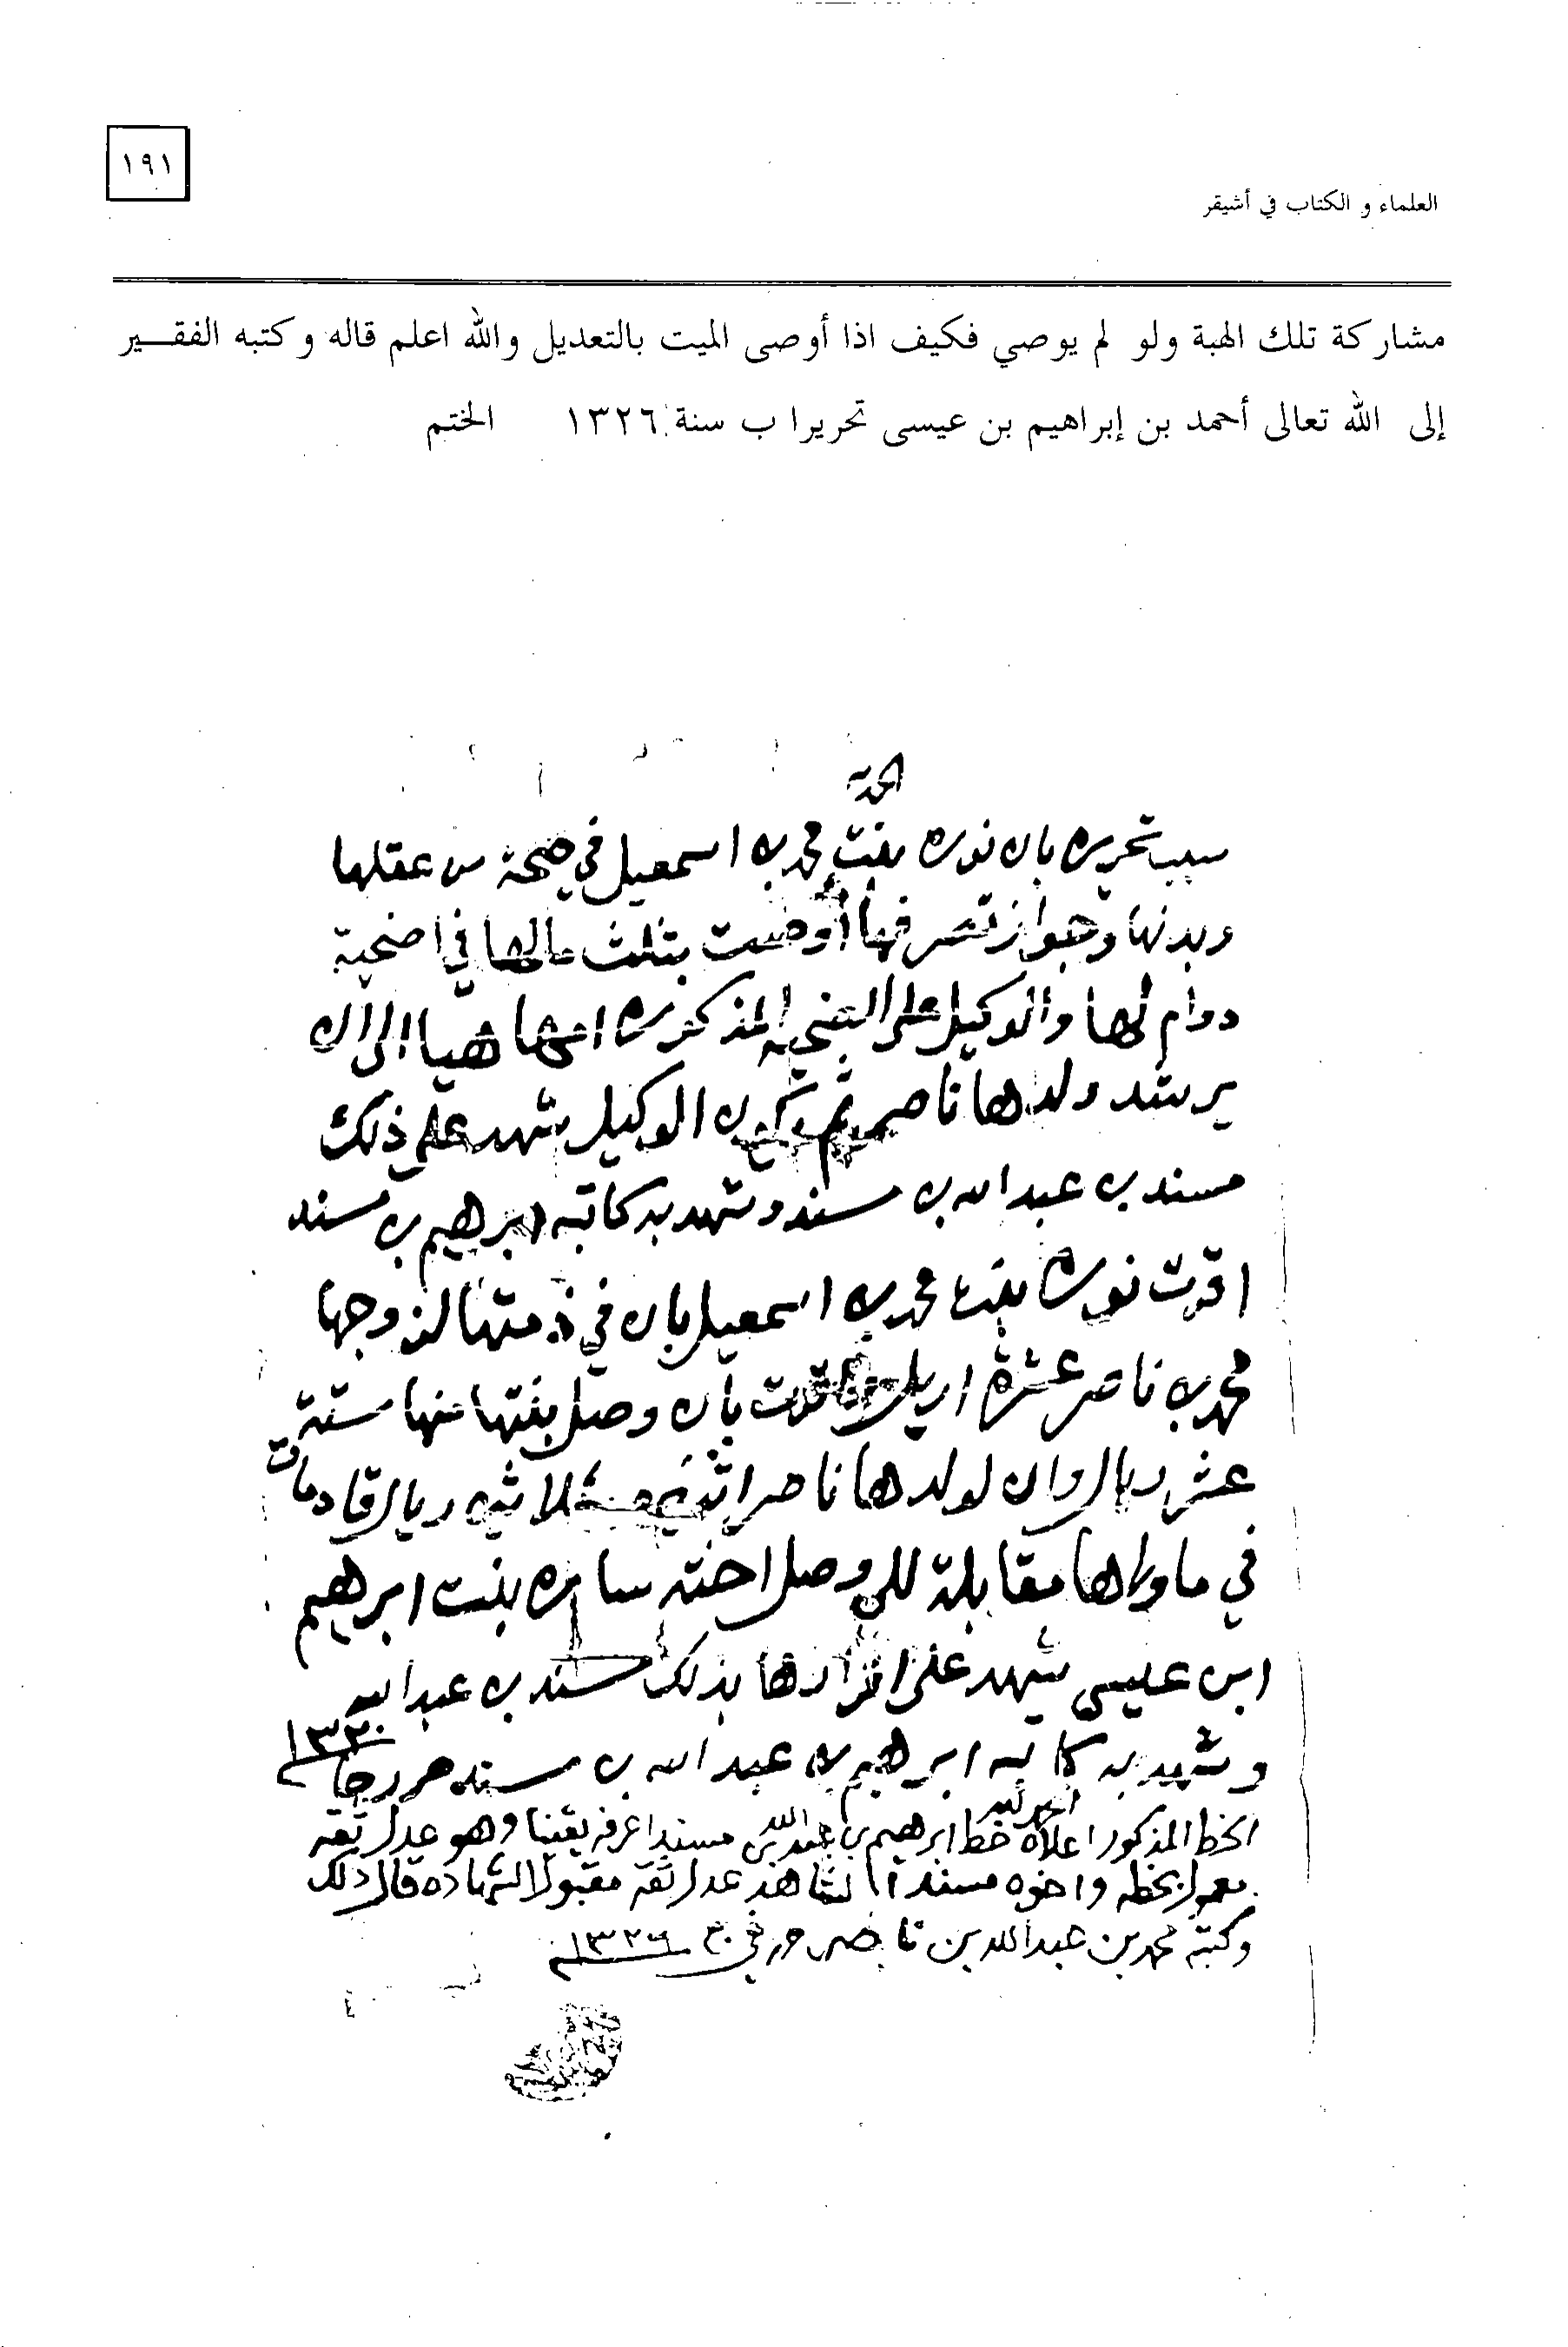 ١٩١
العلماء و الكتاب في أشيقر
مشاركة تلك الهبة ولو لم يوصي فكيف اذا أوصى الميت بالتعديل والله اعلم قاله وكتبه الفقـــير
إلى الله تعالى أحمد بن إبراهيم بن عيسى تحريرا ب سنة ١٣٢٦ الختم
سبب تحريره بان نوره بنت محمد بن اسمعيل في صحة من عقلها
وبدنها وجواز تصرفها أوصت بثلث مالها في اضحية
دوام لها والوكيل على الضحيه المذكوره امها هيا الى ان
يرشد ولدها ناصر ثم يكون الوكيل شهد على ذلك
مسند بن عبد الله بن مسند وشهد به كاتبه ابرهيم بن مسند
اقرت نوره بنت محمد بن اسمعيل بان في ذمتها لزوجها
محمد بن ناصر عشرة اريل واقرت بان وصل بنتها منها ستة
عشر ريال وان لولدها ناصر اثنين وثلاثين ريال قادمات
في ماوراها مقابلة للي وصل اخته ساره بنت ابرهيم
ابن عيسى شهد على اقرارها بذلك مسند بن عبد الله
وشهد به كاتبه ابرهيم بن عبد الله بن مسند حرر ١٣٢٠
الخط المذكور اعلاه خط ابرهيم بن عبد الله بن مسند اعرفه يقينا وهو عدل ثقه
معمول بخطه واخوه مسند الشاهد عدل ثقه مقبول الشهاده قال ذلك
وكتبه محمد بن عبد الله بن ناصر حرر في ١٣٢٦